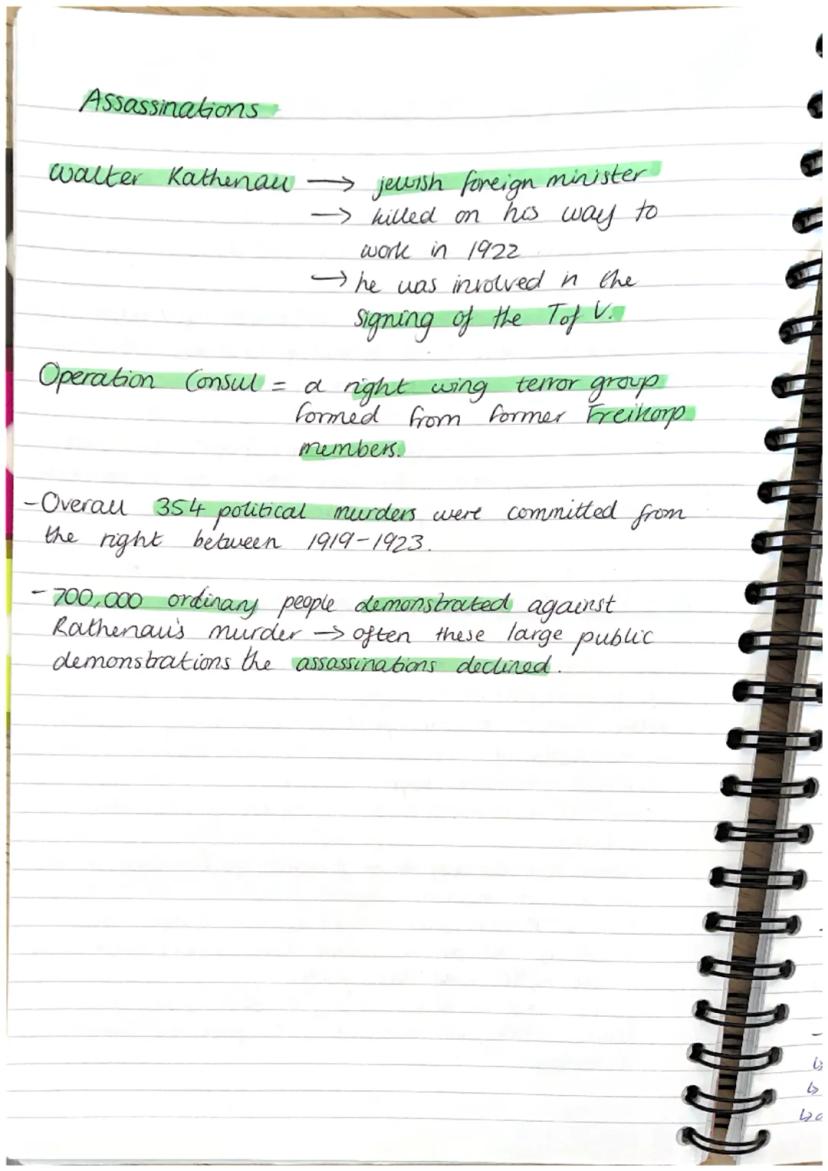 Assassinations
Walter Rathenau → jewish foreign minister
→ killed on his way to
work in 1922
→ he was involved in the
signing of the T of V.
Operation Consul = a right wing terror group
formed from former Freikorp
members.
- Overall 354 political murders were committed from
the right between 1919-1923.
- 700,000 ordinary people demonstrated against
Rathenau's murder → often these large public
demonstrations the assassinations declined.